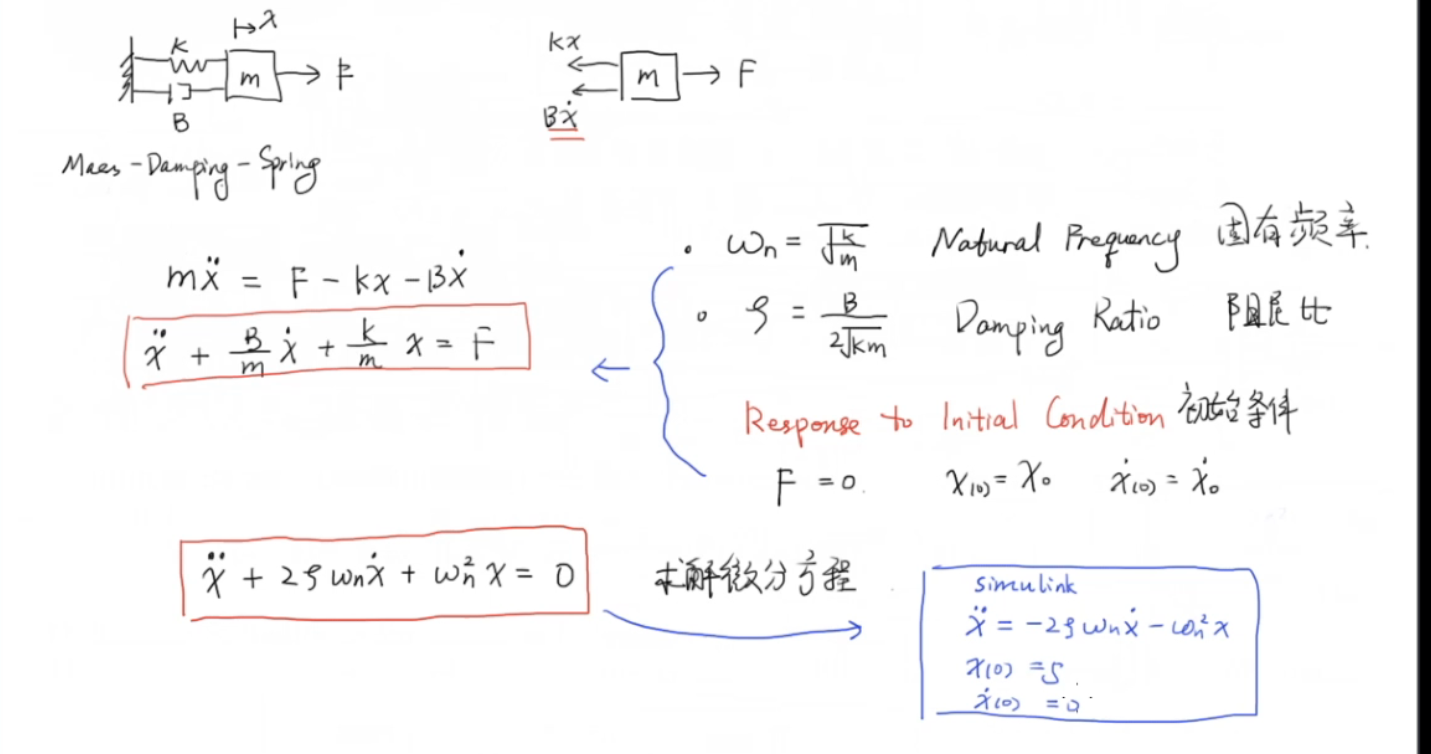 x
k
m
F
B
Maes - Damping - Spring
kx
m
F
Bẋ
mẍ = F - kx - Bẋ
ẍ + B/m ẋ + k/m x = F
• ωn = √(k/m) Natural Frequency 固有频率.
• ζ = B/(2√km) Damping Ratio 阻尼比
Response to Initial Condition 初始条件
F = 0. x(0) = x₀ ẋ(0) = ẋ₀
ẍ + 2ζωnẋ + ωn²x = 0 求解微分方程
simulink
ẍ = -2ζωnẋ - ωn²x
x(0) = 5
ẋ(0) = 0